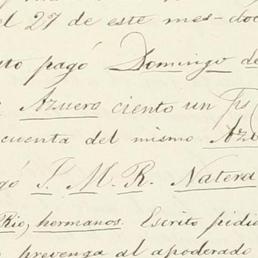 el 27 de este mes - doc
pagó Domingo de
Azuero ciento un ps
cuenta del mismo Az
S. M. R. Natera
Rio, hermanos. Escrito pidie
prevenga al apoderado